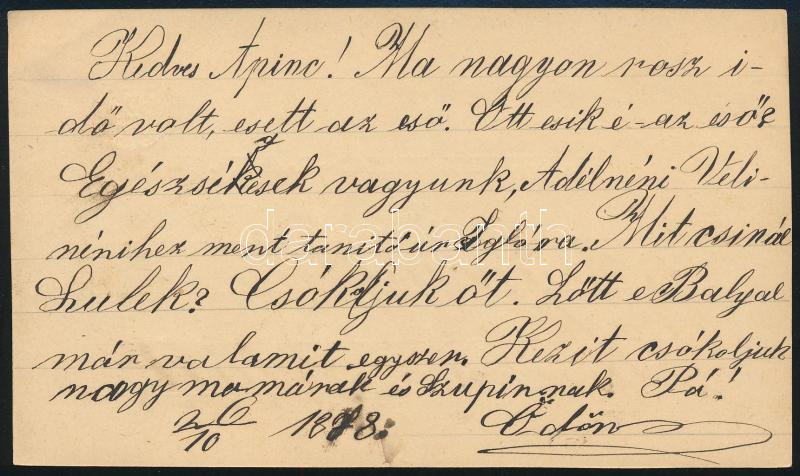 Kedves Apinc! Ma nagyon rosz i-
dő volt, esett az eső. Ott esik é - az eső?
Egészségesek vagyunk, Adélnéni Veli-
nénihez ment tanitóúr Iglóra. Mit csinál
Lulek? Csókoljuk őt. Lőtt e Balyal
már valamit egyszer. Kezit csókoljuk
nagymamának és Szupinnak. Pá!
26/10 1878. Ödön
darabanth